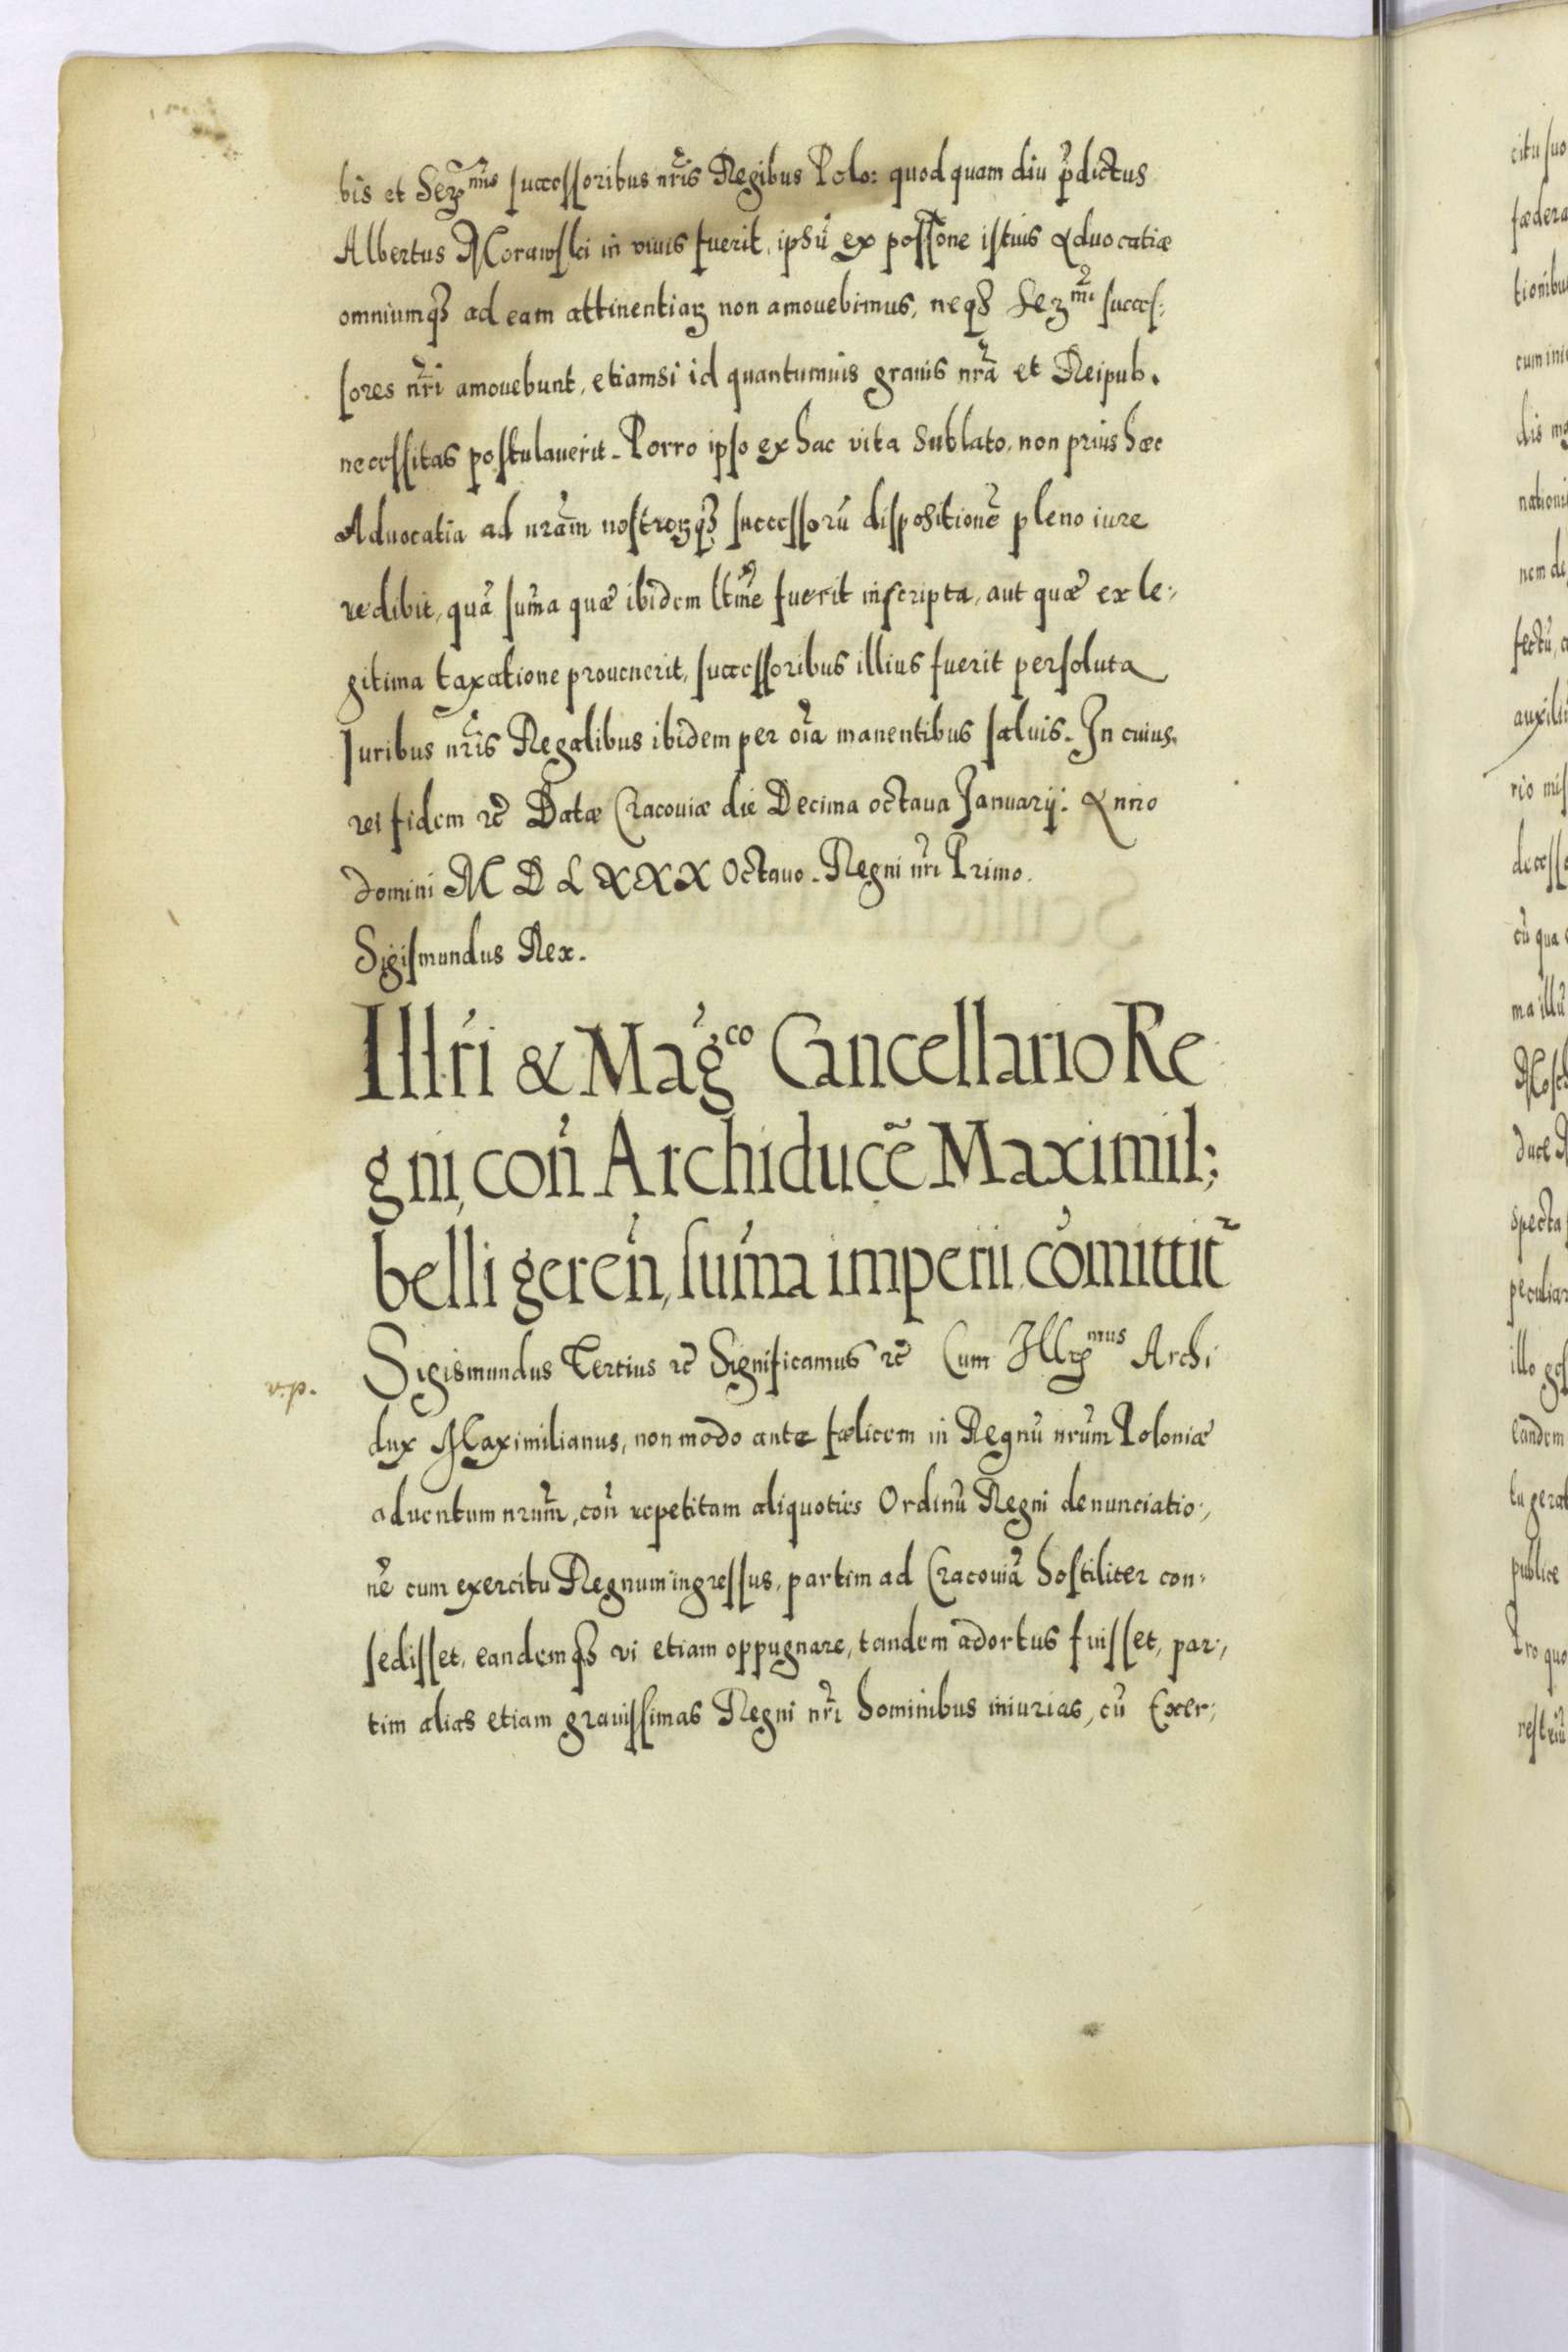 bis et Ser̃mis successoribus nr̃is Regibus Polo: quod quam diu p̃dictus
Albertus Morawski in viuis fuerit, ipsũ ex possone istius Aduocatiæ
omniumq₃ ad eam attinentiaꝝ non amouebimus, neq₃ Serm̃i succes:
sores nr̃i amouebunt, etiamsi id quantumuis grauis nr̃a et Reipub.
necessitas postulauerit. Porro ipso ex hac vita sublato, non prius hæc
Aduocatia ad nr̃am nostroꝝq₃ successorũ dispositionẽ pleno iure
redibit, quã sum̃a quæ ibidem ltm̃e fuerit inscripta, aut quæ ex le:
gitima taxatione prouenerit, successoribus illius fuerit persoluta
Juribus nr̃is Regalibus ibidem per oĩa manentibus saluis. In cuius
rei fidem &c̃ Datæ Cracouiæ die Decima octaua Januarij: Anno
Domini M D L XXX Octauo. Regni nr̃i Primo.
Sigismundus Rex.
Illr̃i & Mag̃co Cancellario Re
gni, coñ Archiducẽ Maximil:
belli gereñ, sum̃a imperii com̃ittit᷑
Sigismundus Tertius &c̃ Significamus &c̃ Cum Illr̃mus Archi
dux Maximilianus, non modo ante fælicem in Regnũ nr̃um Poloniæ
aduentum nr̃um, coñ repetitam aliquoties Ordinũ Regni denunciatio:
nẽ cum exercitu Regnum ingressus, partim ad Cracouiã hostiliter con:
sedisset, eandemq₃ vi etiam oppugnare, tandem adortus fuisset, par:
tim alias etiam grauissimas Regni nr̃i hominibus iniurias, cũ Exer: